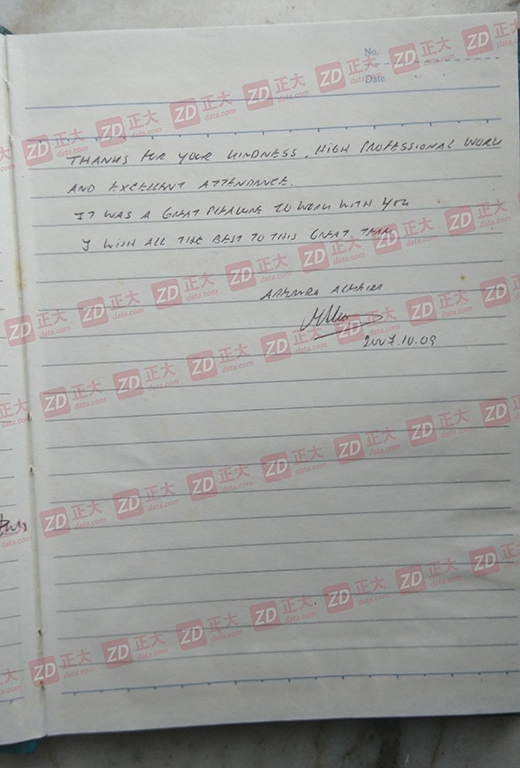 No.
Date
THANKS FOR YOUR KINDNESS, HIGH PROFESSIONAL WORK
AND EXCELLENT ATTENDANCE.
IT WAS A GREAT PLEASURE TO WORK WITH YOU
I WISH ALL THE BEST TO THIS GREAT TEAM
2007.10.09
ZD 正大
data.com